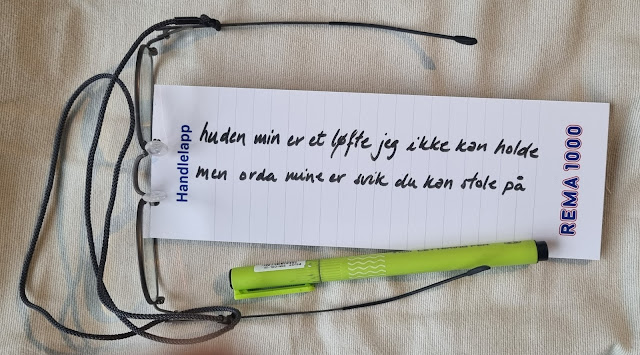 Handlelapp
huden min er et løfte jeg ikke kan holde
men orda mine er svik du kan stole på
REMA 1000